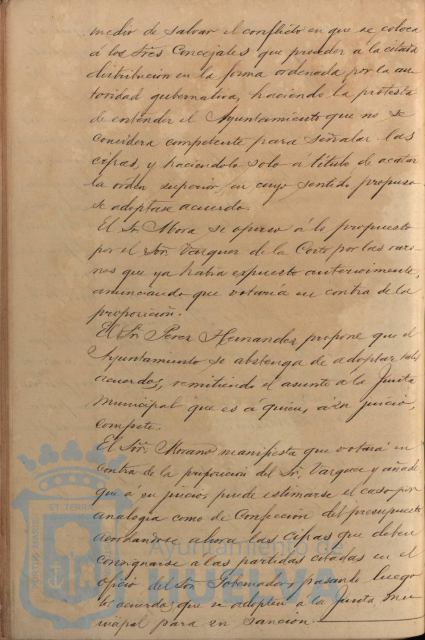 medio de salvar el conflicto en que se coloca
á los Sres Concejales que proceder á la citada
distribucion en la forma ordenada por la au-
toridad gubernativa, haciendo la protesta
de entender el Ayuntamiento que no se
considera competente para señalar las
cifras, y haciendolo solo a titulo de acatar
la orden superior, en cuyo sentido propuso
se adoptase acuerdo.
El Sr Mora se opuso á lo propuesto
por el Sor Vazquez de la Corte por las razo-
nes que ya habia espuesto anteriormente,
anunciando que votaria en contra de la
proposicion.
El Sr Perez Hernandez propone que el
Ayuntamiento se abstenga de adoptar
acuerdos, remitiendo el asunto á la Junta
Municipal que es á quien, á su juicio,
compete.
El Sor Morano manifiesta que votará en
contra de la proposicion del Sr Vazquez y añade
que á su juicio, puede estimarse el caso por
analogia como de Confeccion del presupuesto
acordandose ahora las cifras que deben
consignarse a las partidas citadas en el
oficio del Sor Gobernador, pasando luego
los acuerdos que se adopten á la Junta Mu-
nicipal para su sancion.
Ayuntamiento de
HUELVA